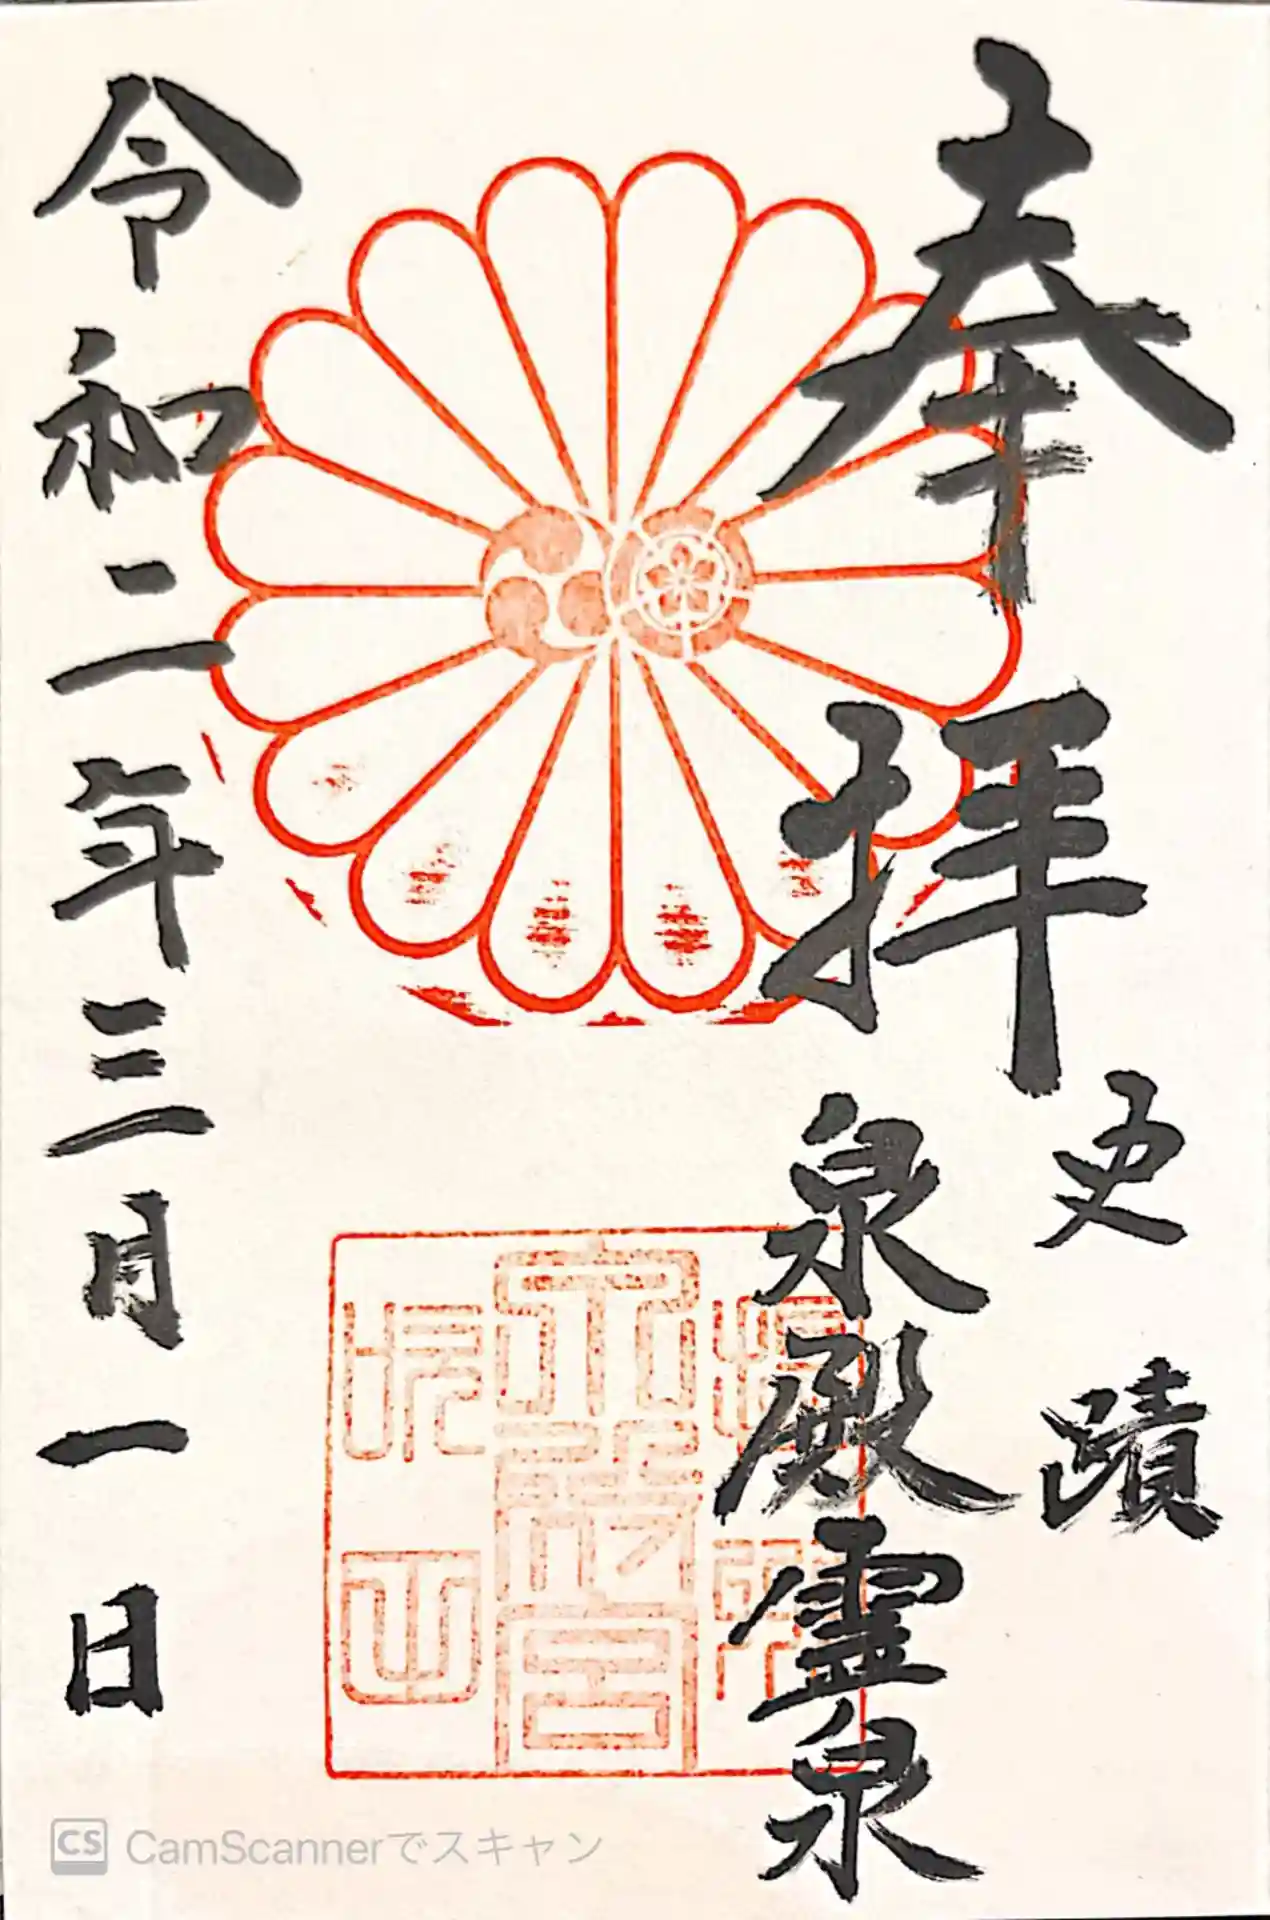 奉拝
史蹟
泉殿霊泉
令和二年三月一日
CS CamScannerでスキャン